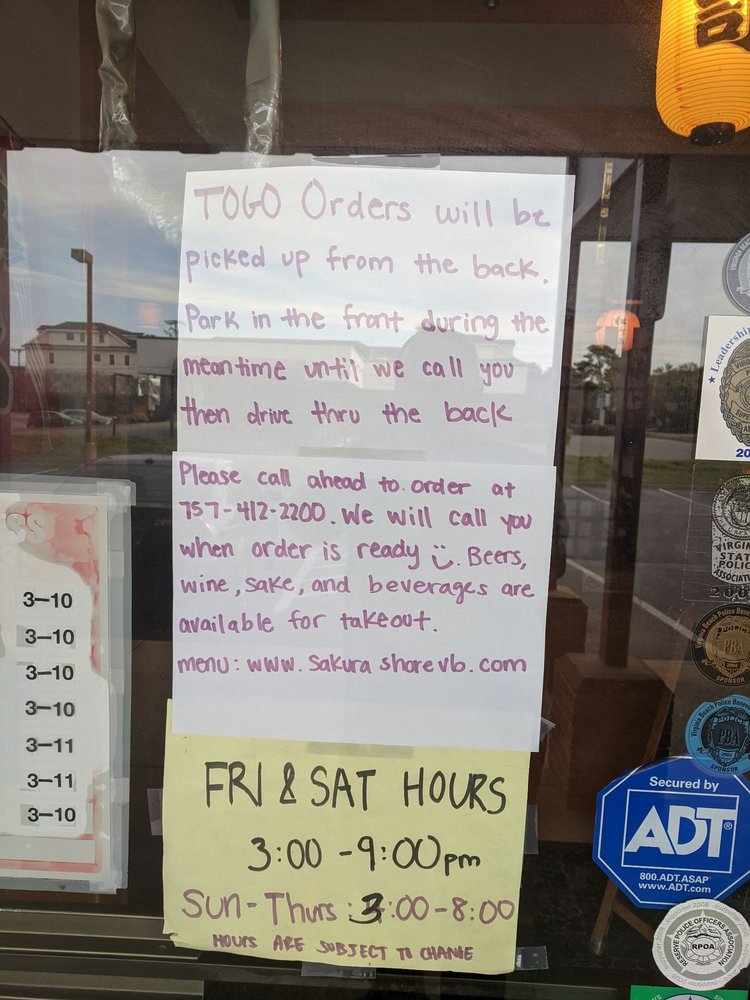 TOGO Orders will be
picked up from the back.
Park in the front during the
meantime until we call you
then drive thru the back
Please call ahead to order at
757-412-2200. We will call you
when order is ready :). Beers,
wine, sake, and beverages are
available for takeout.
menu: www.sakurashorevb.com
FRI & SAT HOURS
3:00 - 9:00pm
Sun-Thurs: 3:00-8:00
HOURS ARE SUBJECT TO CHANGE
3-10
3-10
3-10
3-10
3-11
3-11
3-10
Leadership
20
VIRGINIA
STATE
POLICE
ASSOCIATION
Virginia Beach Police Bene
PBA
2004
SPONSOR
Virginia Beach Police Benev
PBA
SPONSOR
Secured by
ADT®
800.ADT.ASAP
www.ADT.com
RESERVE POLICE OFFICERS ASSOCIATION
RPOA